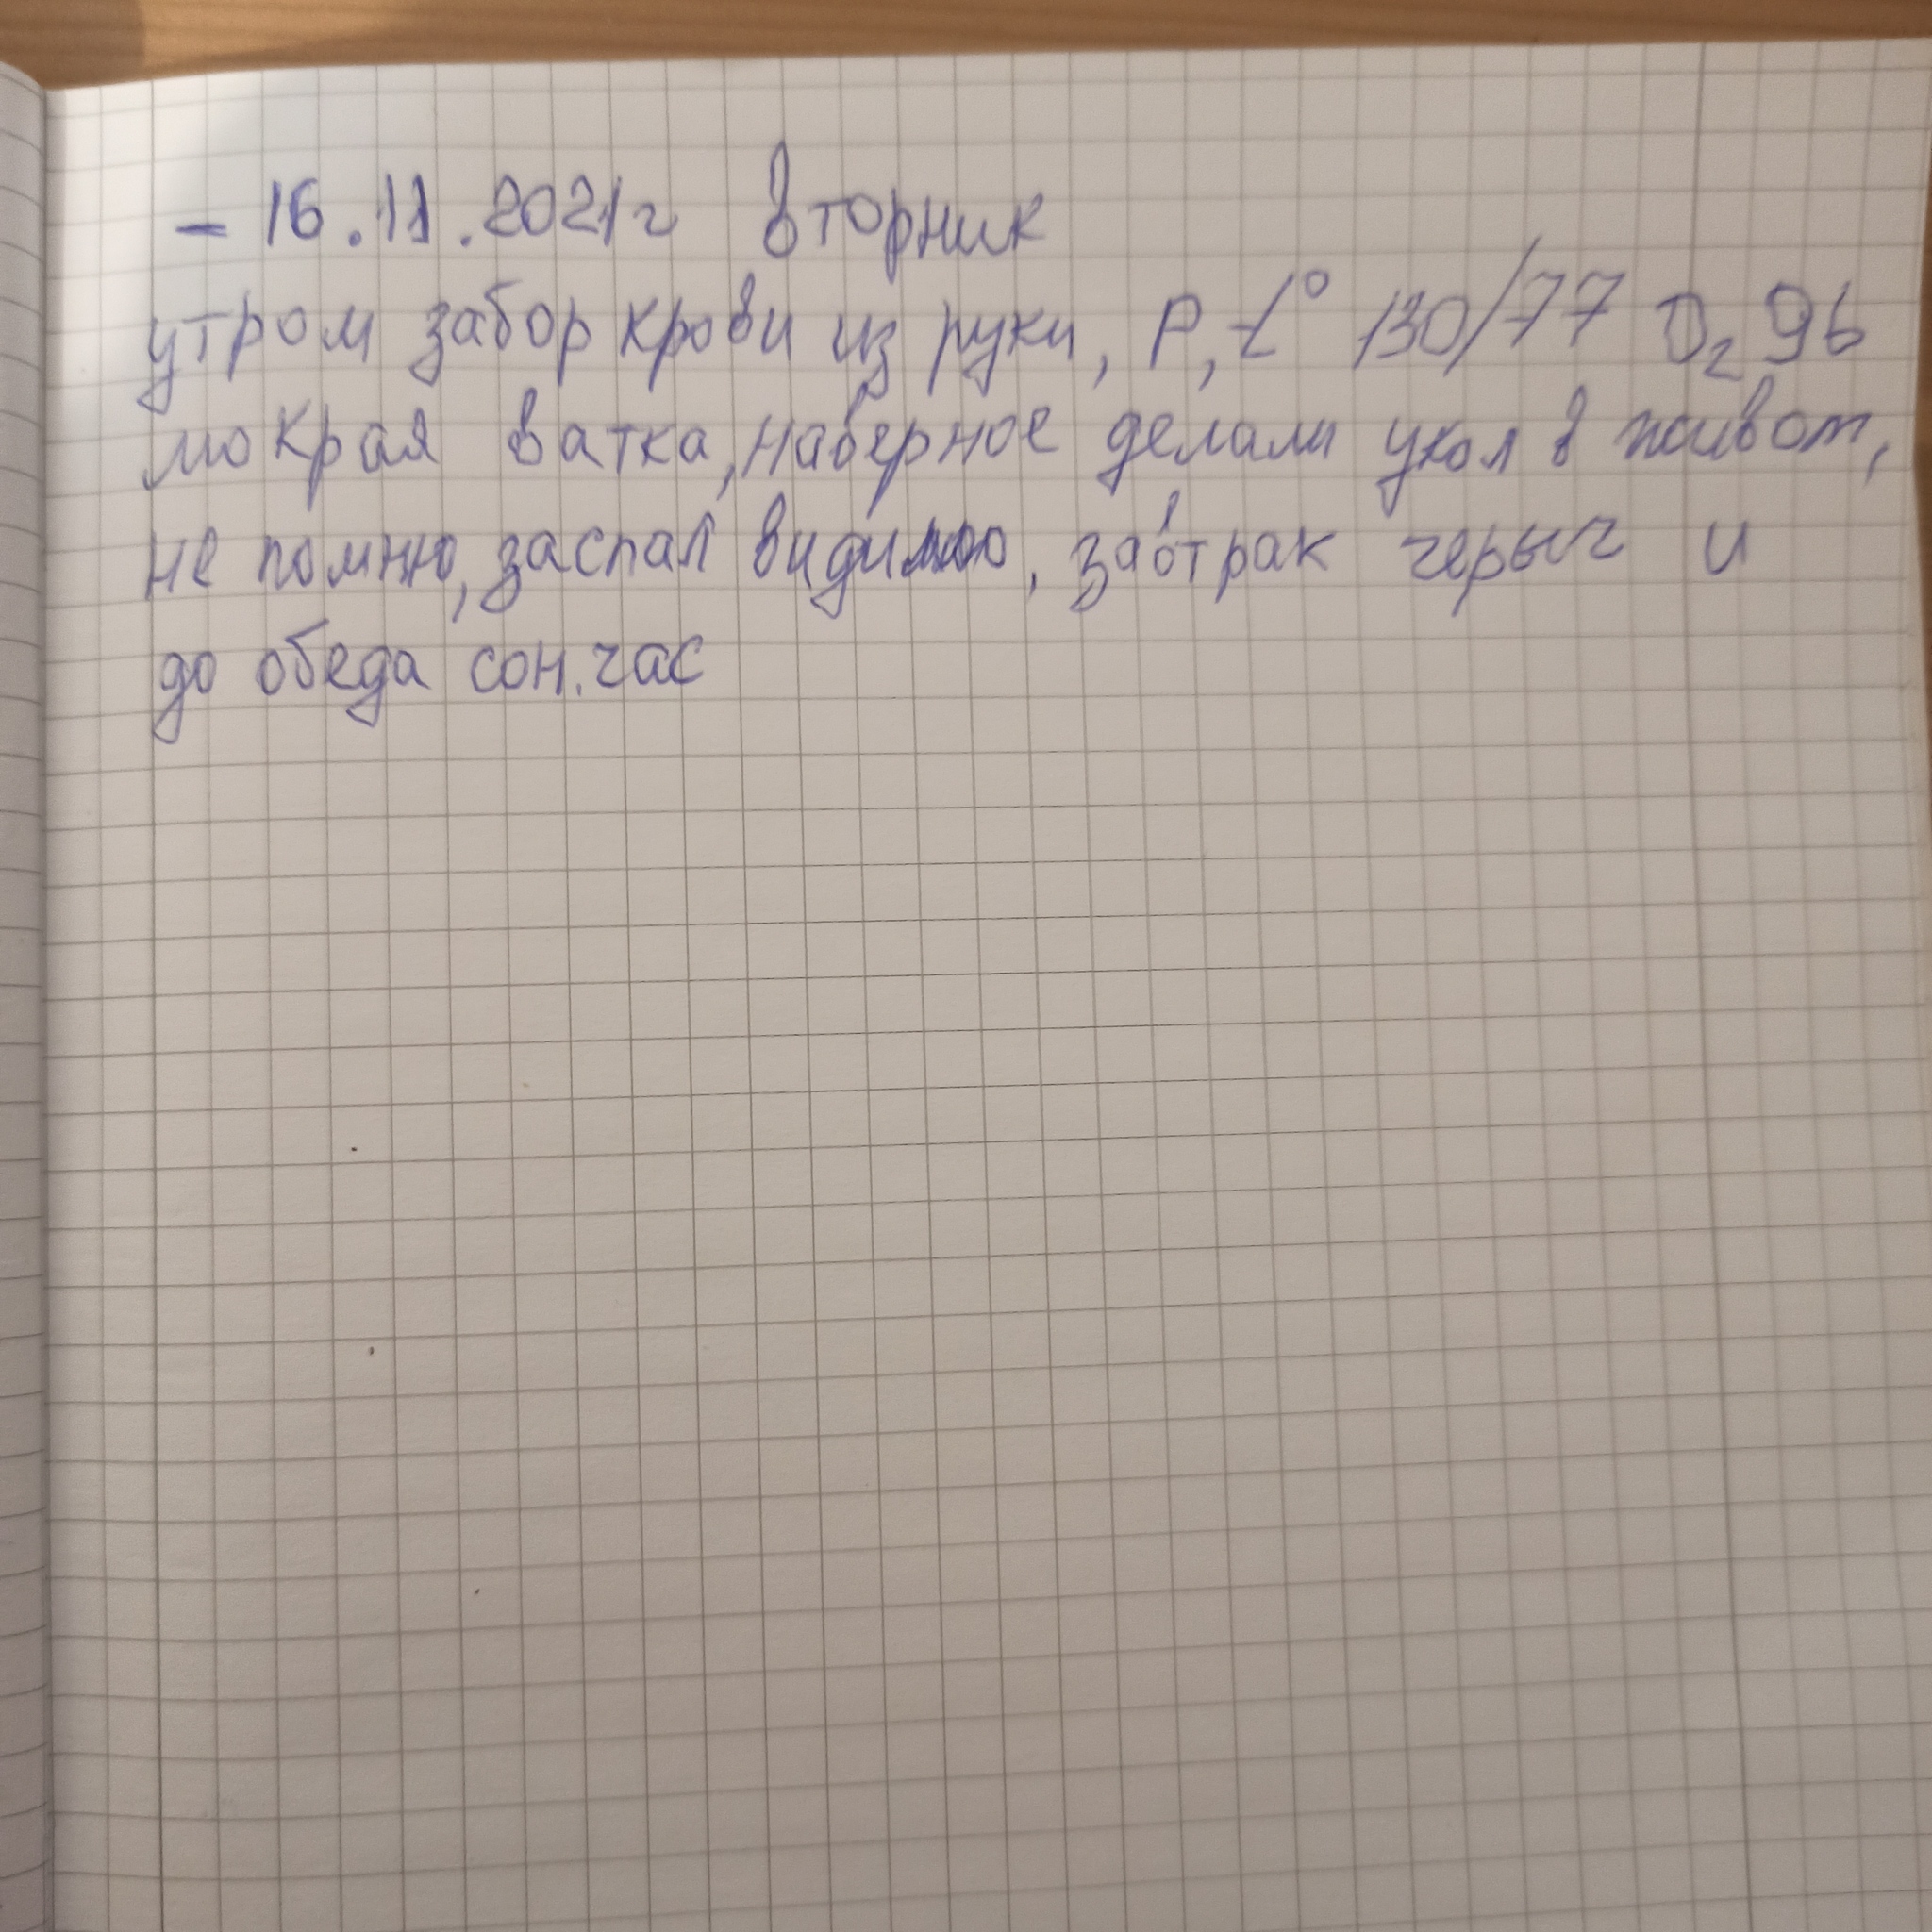 - 16.11.2021г вторник
утром забор крови из руки, P, t° 130/77 O₂ 96
мокрая ватка, наверное делали укол в живот,
не помню, заспал видимо, завтрак и
до обеда сон.час